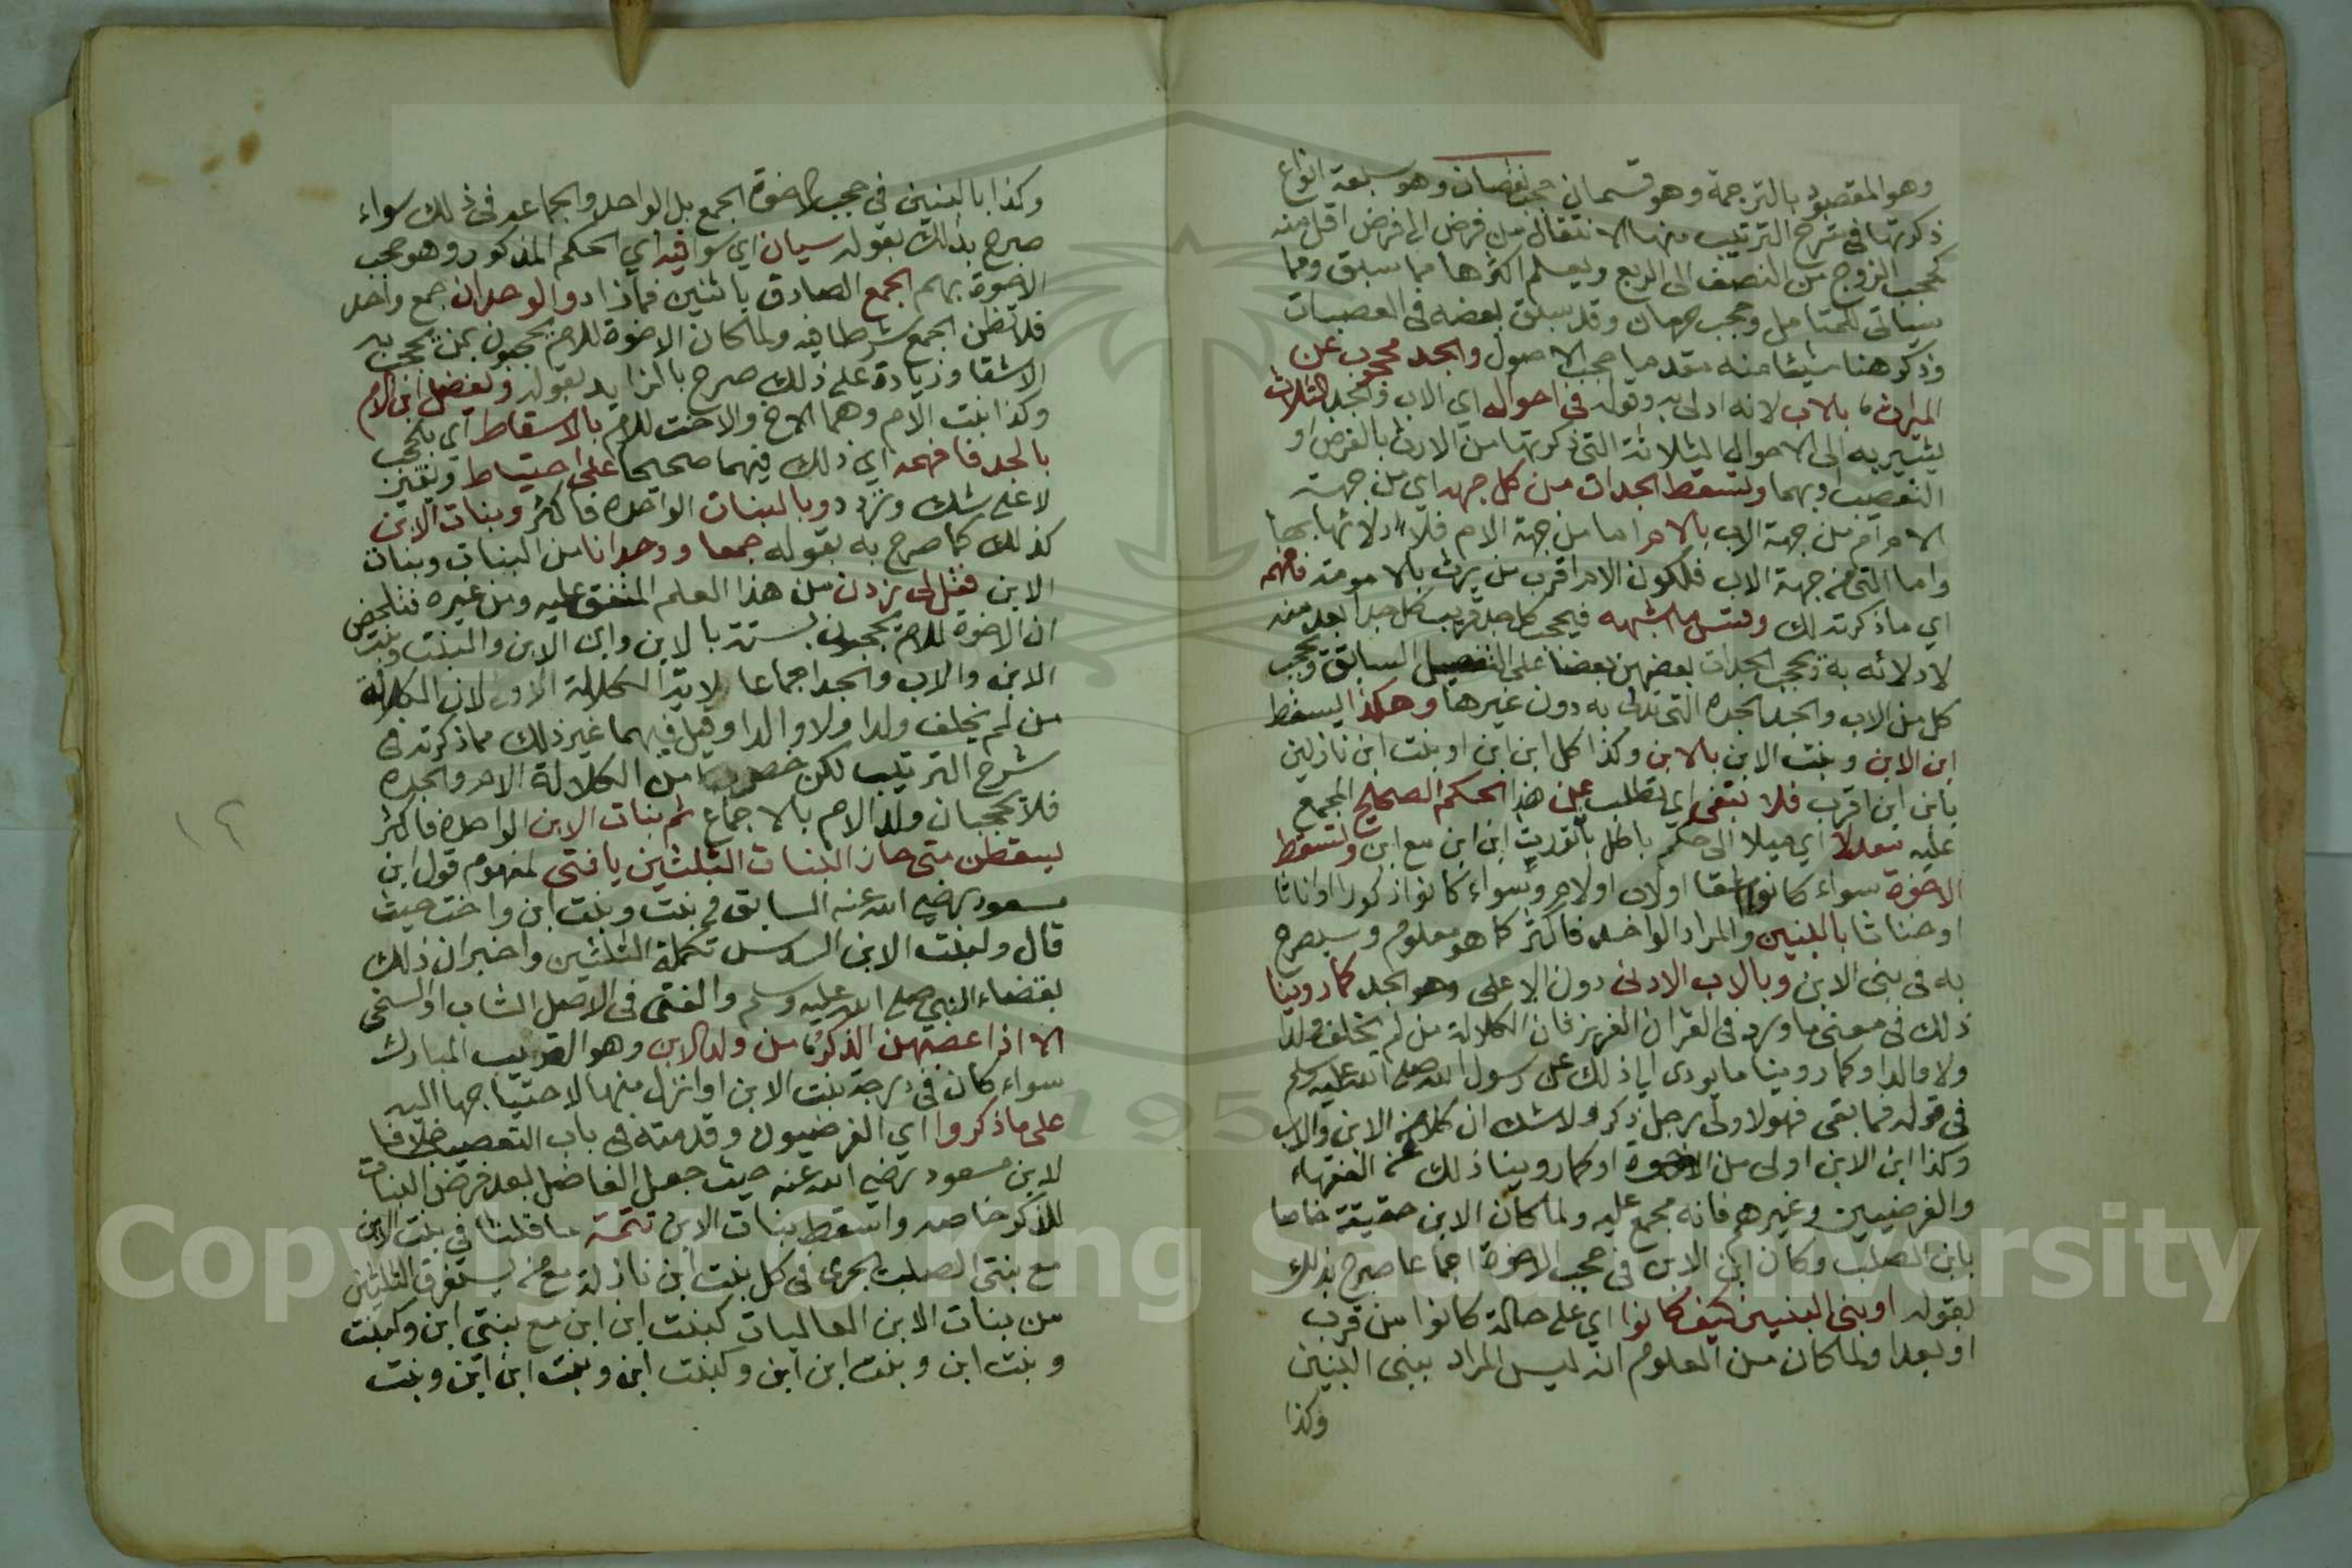 وهو المقصود بالترجمة وهو قسمان حجب نقصان وهو سبعة انواع
ذكرتها في شرح الترتيب منها الانتقال من فرض الى فرض اقل منه
كحجب الزوج من النصف الى الربع ويعلم اكثرها مما سبق ومما
سياتي للمتامل وحجب حرمان وقد سبق بعضه في العصبات
وذكر هنا شيئا منه مقدما حجب الاصول والجد محجوب عن
الميراث بالاب لانه ادلى به وقوله في احواله اي الاب والجد الثلاث
يشير به الى الاحوال الثلاثة التي ذكرتها من الارث بالفرض او
التعصيب او بهما وتسقط الجدات من كل جهه اي من جهة
الام او من جهة الاب بالام اما من جهة الام فلادلائها بها
واما التي من جهة الاب فلكون الام اقرب من يرث بالامومة فافهمه
اي ما ذكرته لك وقس ما اشبهه فيحجب كل جد قريب كل جد ابعد منه
لادلائه به وتحجب الجدات بعضهن بعضا على التفصيل السابق ويحجب
كل من الاب والجد الجدة التي تدلي به دون غيرها وهكذا يسقط
ابن الابن وبنت الابن بالابن وكذا كل ابن ابن او بنت ابن نازلين
بابن ابن اقرب فلا تبغي اي تطلب عن هذا الحكم الصحيح المجمع
عليه معدلا اي ميلا الى حكم باطل بتوريث ابن ابن مع ابن وتسقط
الاخوة سواء كانوا اشقا او لاب او لام وسواء كانوا ذكورا او اناثا
او خناثا بالبنين والمراد الواحد فاكثر كما هو معلوم وسيصرح
به في بني الابن وبالاب الادنى دون الاعلى وهو الجد كما روينا
ذلك في معنى ما ورد في القران العزيز فان الكلالة من لم يخلف ولدا
ولا والدا وكما روينا ما يودي الى ذلك عن رسول الله صلى الله عليه وسلم
في قوله فما بقي فهو لاولى رجل ذكر ولا شك ان كلا من الابن والاب
وكذا ابن الابن اولى من الاخوة او كما روينا ذلك عن الفقهاء
والفرضيين وغيرهم فانه مجمع عليه ولما كان الابن حقيقة خاصا
بابن الصلب وكان ابن الابن في حجب الاخوة اجماعا صرح بذلك
بقوله او ببني البنين كيف كانوا اي على حالة كانوا من قرب
او بعد ولما كان من المعلوم انه ليس المراد ببني البنين
وكذا
وكذا بالبنين في حجب الاخوة الجمع بل الواحد والجماعه في ذلك سواء
صرح بذلك بقوله سيان اي سوا فيه اي الحكم المذكور وهو حجب
الاخوة بهم الجمع الصادق باثنين فما زاد والوحدان جمع واحد
فلا تظن الجمع شرطا فيه ولما كان الاخوة للام يحجبون بمن يحجب به
الاشقا وزيادة على ذلك صرح بالزايد بقوله ويفضل ابن الام
وكذا بنت الام وهما الاخ والاخت للام بالاسقاط اي بالحجب
بالجد فافهمه اي ذلك فيهما صحيحا على احتياط ويقين
لا على شك وتردد وبالبنات الواحدة فاكثر وبنات الابن
كذلك كما صرح به بقوله جمعا ووحدانا من البنات وبنات
الابن فقل لي زدني من هذا العلم المتفق عليه ومن غيره فتلخص
ان الاخوة للام يحجبون بستة بالابن وابن الابن والبنت وبنت
الابن والاب والجد اجماعا لاية الكلالة الاولى لان الكلالة
من لم يخلف ولدا ولا والدا وقيل فيهما غير ذلك مما ذكرته في
شرح الترتيب لكن خص من الكلالة الام والجدة
فلا يحجبان ولد الام بالاجماع ثم بنات الابن الواحدة فاكثر
يسقطن متى حاز البنات الثلثين يا فتى لمفهوم قول ابن
مسعود رضي الله عنه السابق في بنت وبنت ابن واخت حيث
قال ولبنت الابن السدس تكملة الثلثين واخبر ان ذلك
بقضاء النبي صلى الله عليه وسلم والفتى في الاصل الشاب او السخي
الا اذا عصبهن الذكر من ولد الابن وهو القريب المبارك
سواء كان في درجة بنت الابن او انزل منها لاحتياجها اليه
على ما ذكروا اي الفرضيون وقدمته في باب التعصيب خلافا
لابن مسعود رضي الله عنه حيث جعل الفاضل بعد فرض البنات
للذكر خاصه واسقط بنات الابن تتمة ما قلنا في بنت الابن
مع بنتي الصلب يجري في كل بنت ابن نازلة مع من يستغرق الثلثين
من بنات الابن العاليات كبنت ابن ابن مع بنتي ابن وكبنت
وبنت ابن وبنت ابن ابن وكبنت ابن وبنت ابن ابن وبنت
١٢
Copyright © King Saud University
195